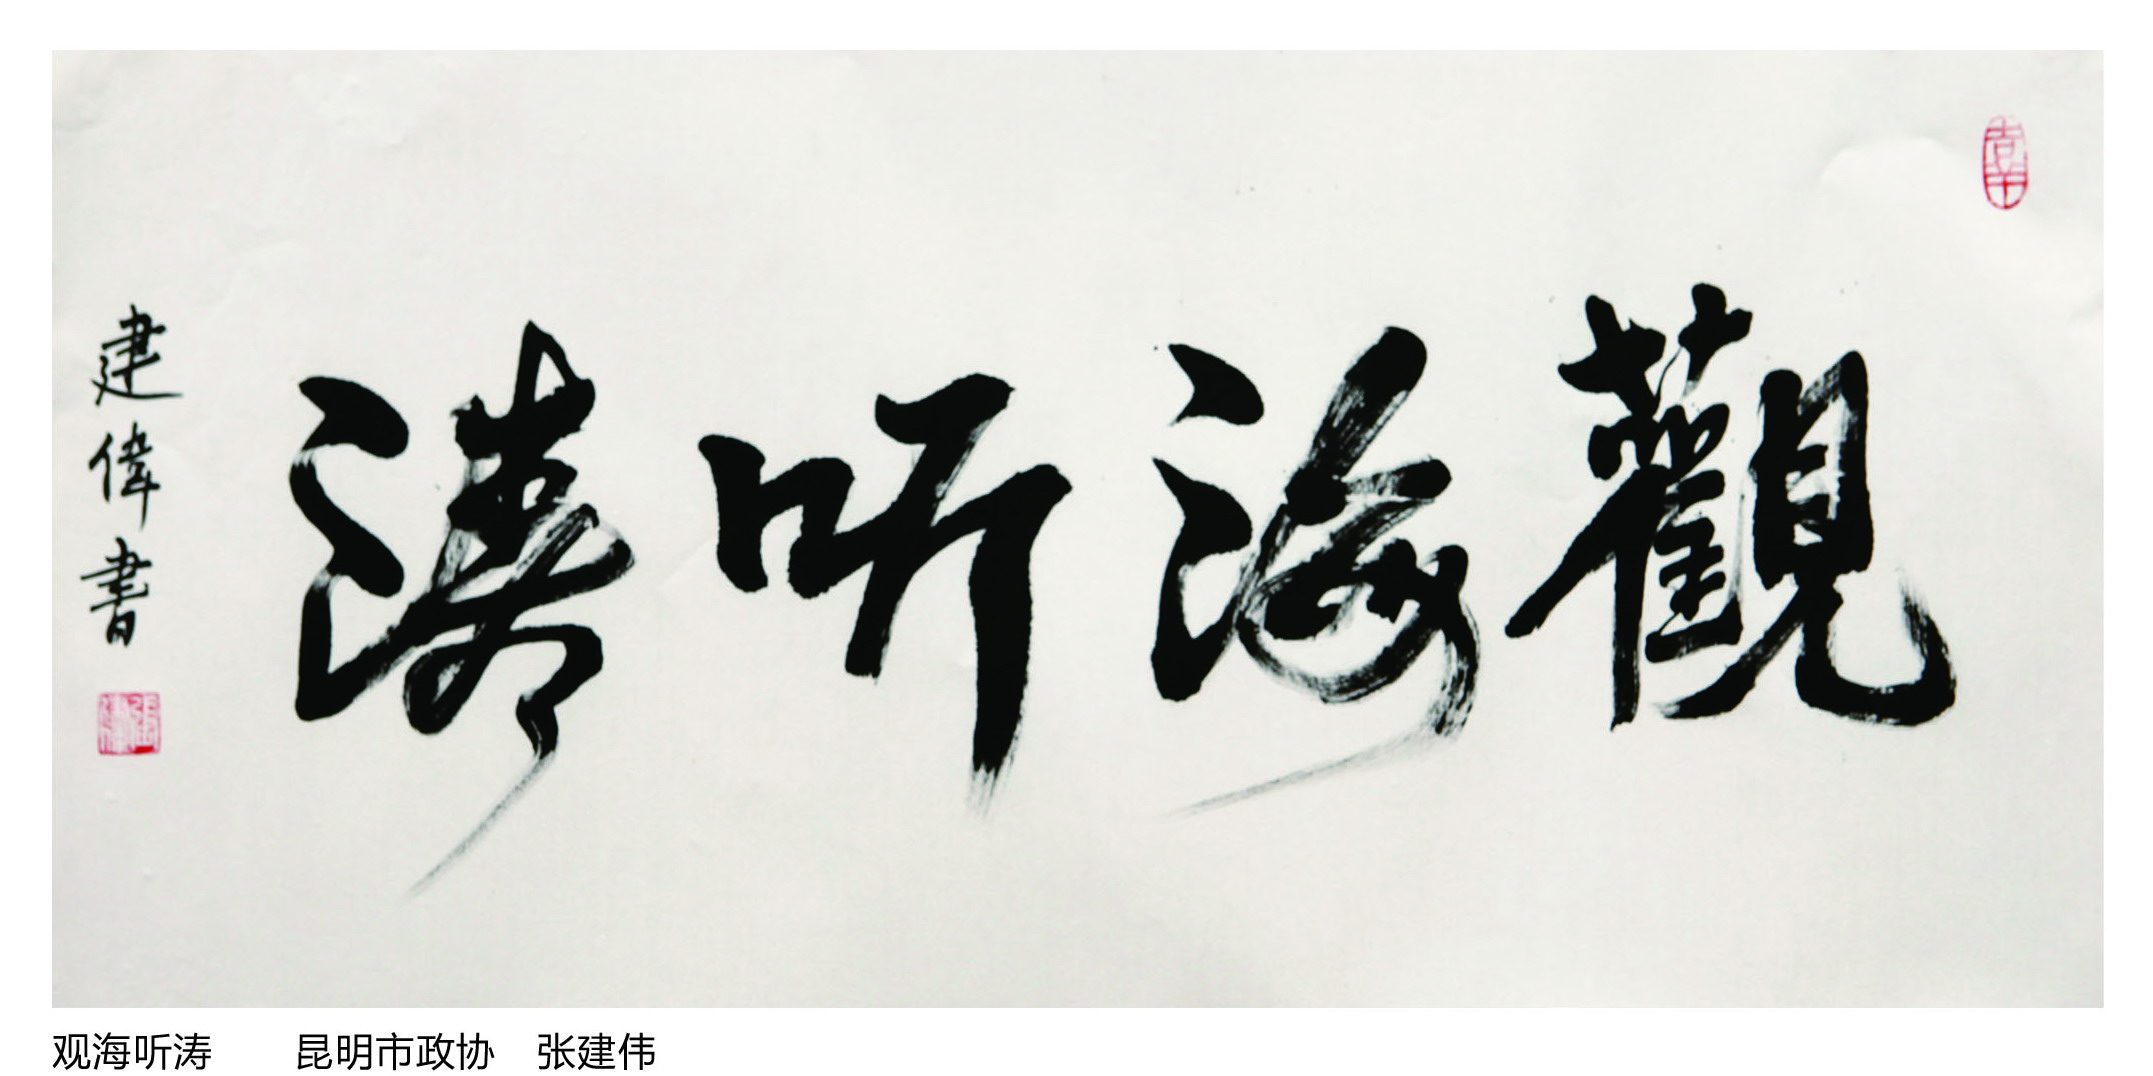 觀海听濤
建偉書
观海听涛 昆明市政协 张建伟